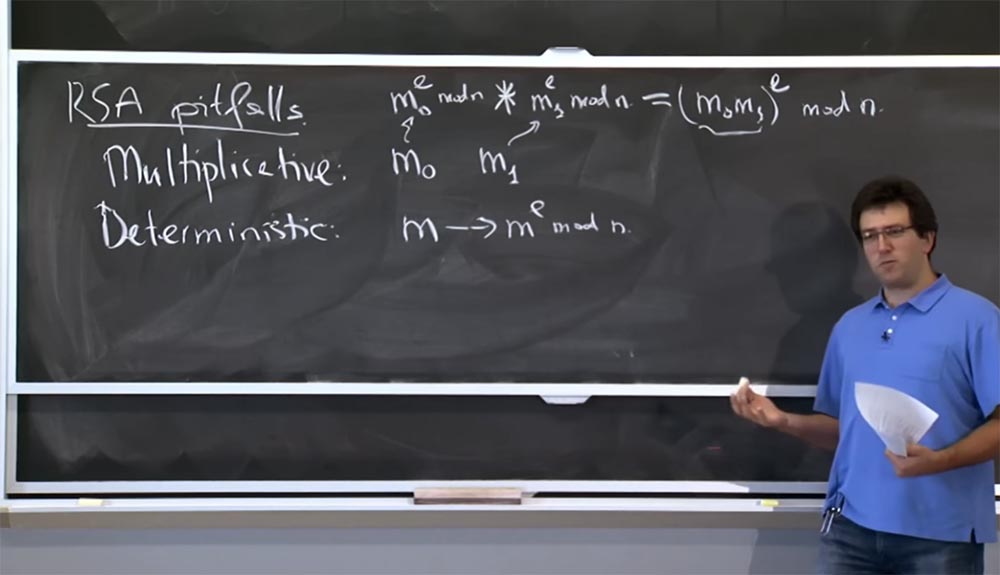 RSA pitfalls. m₀ᵉ mod n * m₁ᵉ mod n = (m₀m₁)ᵉ mod n.
Multiplicative: m₀ m₁
Deterministic: m → mᵉ mod n.